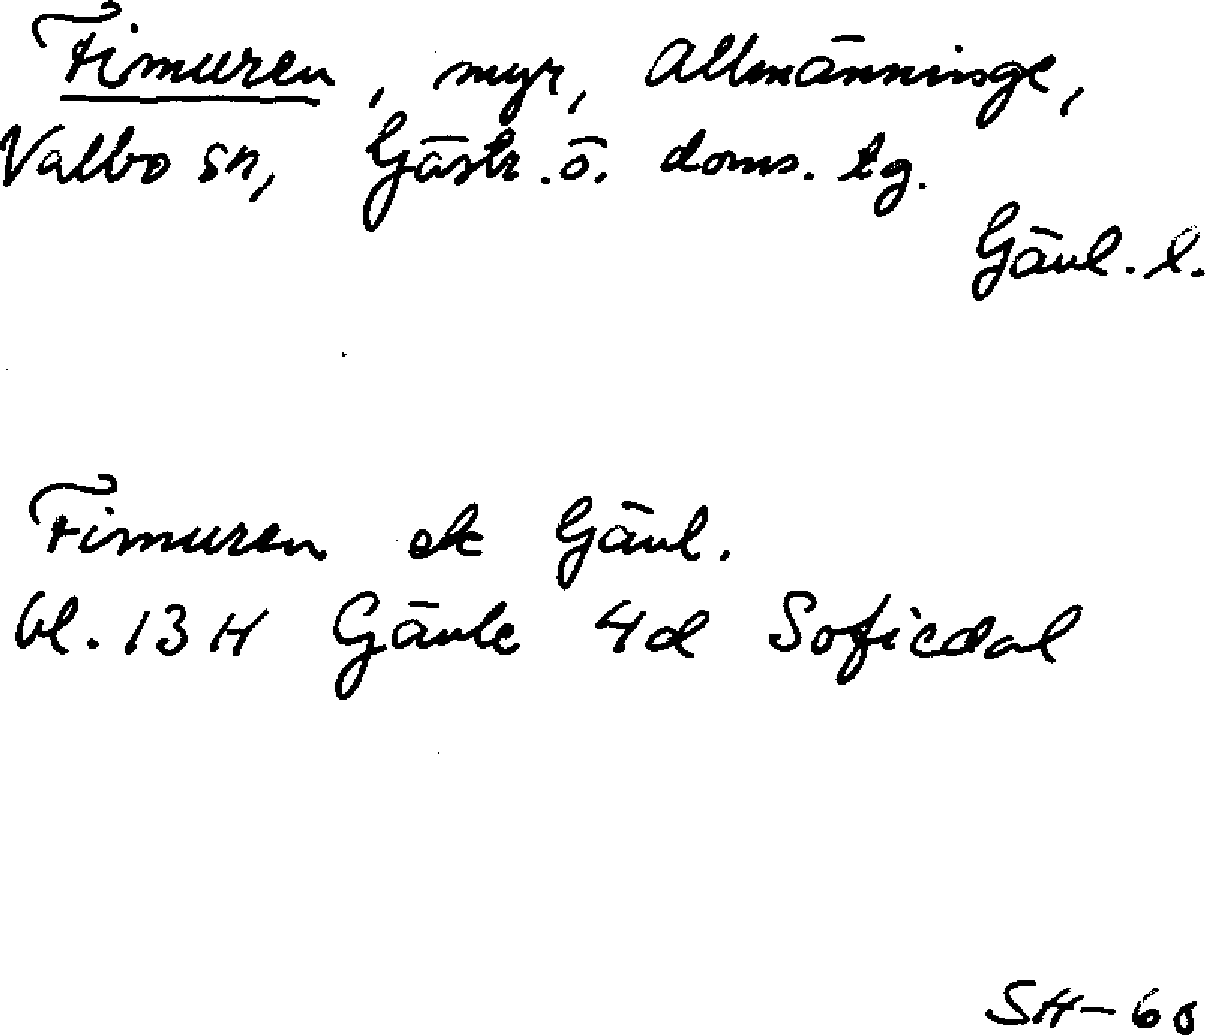 Fimuren, myr, Allmänninge,
Valbo sn, Gästr. ö. doms. tg.
Gävl. l.
Fimuren ek Gävl.
bl. 13 H Gävle 4d Sofiedal
SH-60